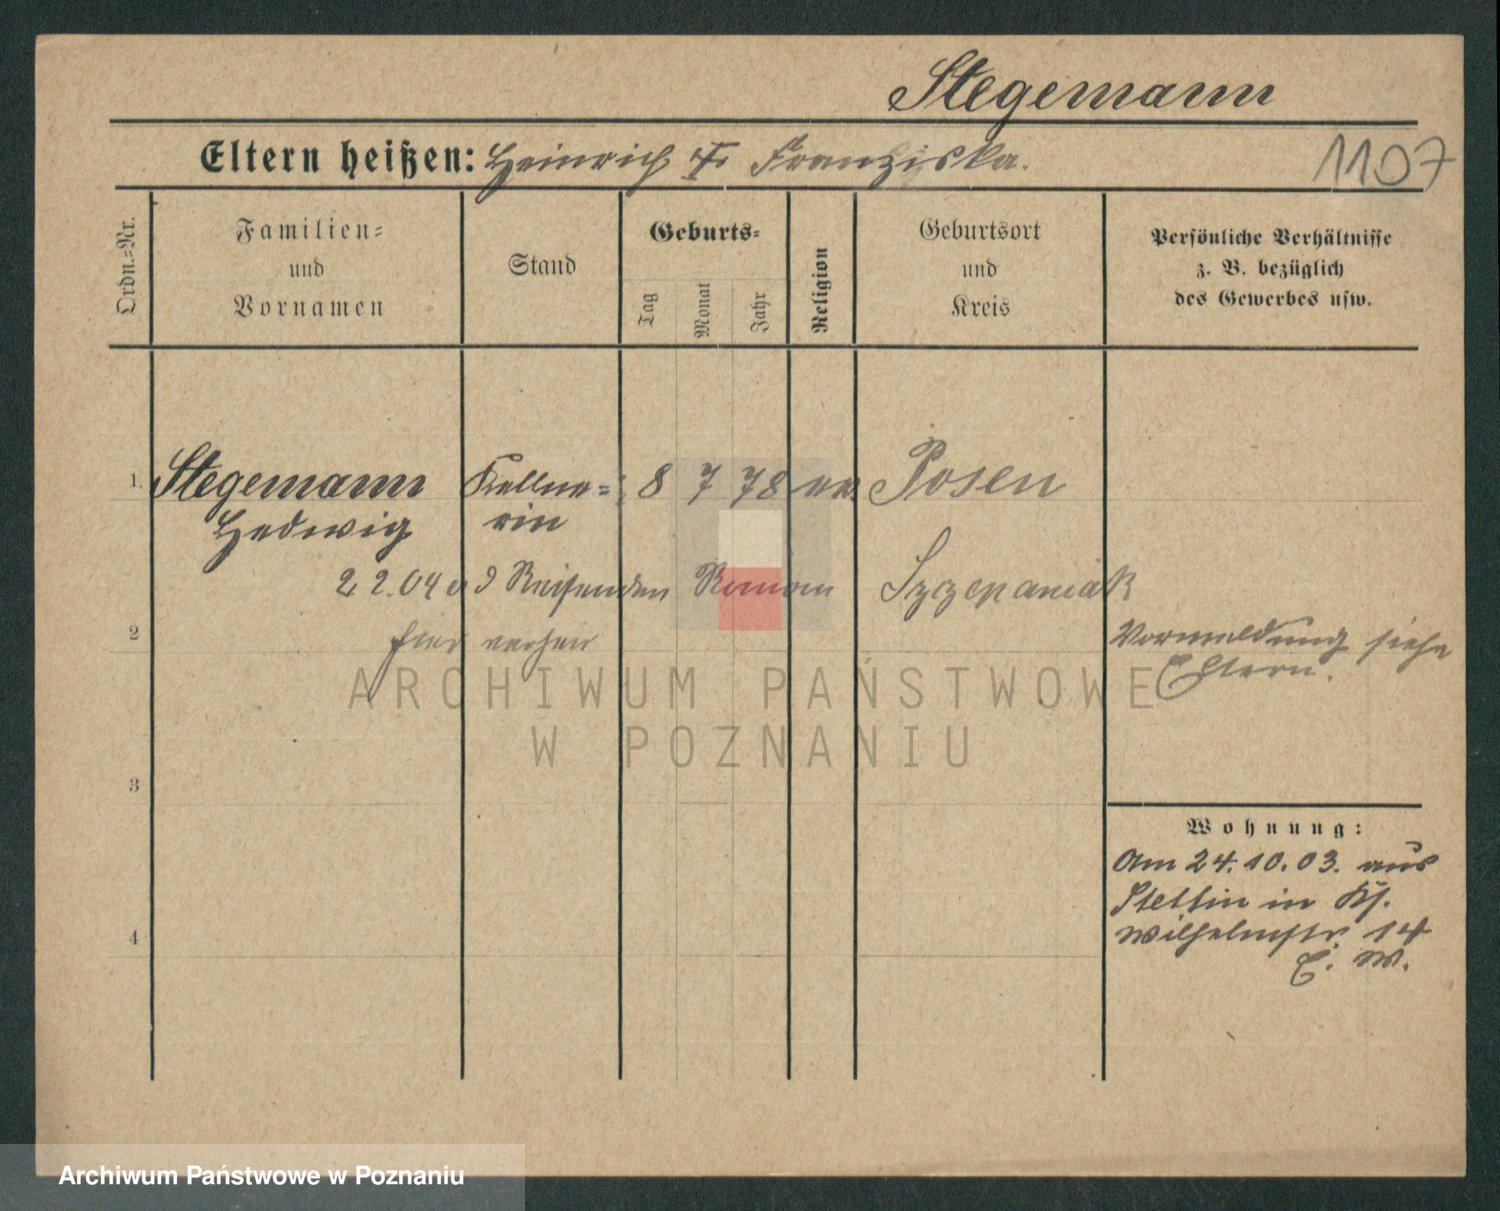 Stegemann
Eltern heißen: Heinrich Franziska.
1107
Ordn.-Nr.
Familien-
und
Vornamen
Stand
Geburts-
Tag
Monat
Jahr
Religion
Geburtsort
und
Kreis
Persönliche Verhältnisse
z. B. bezüglich
des Gewerbes usw.
1 Stegemann Kellne- 8 7 78 Posen
Hedwig rin
2 2.04 d Reisenden Roman Szczepaniak
hier
2
Vormeldung siehe
Eltern.
ARCHIWUM PAŃSTWOWE
W POZNANIU
3
Wohnung:
Am 24.10.03. aus
Stettin in
Wilhelmstr. 14
E. W.
4
Archiwum Państwowe w Poznaniu